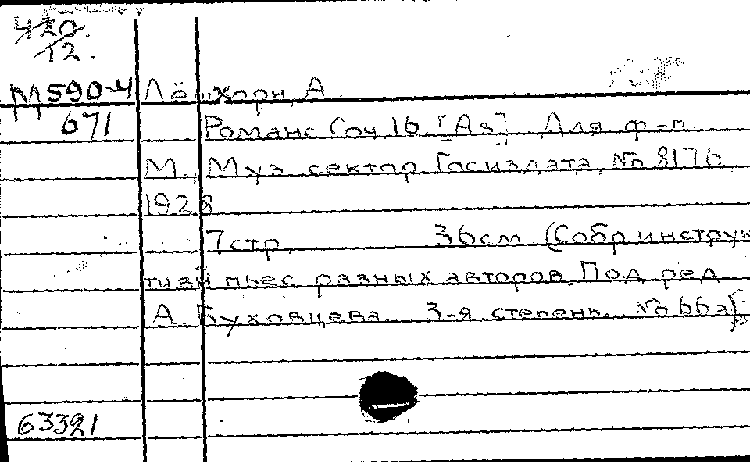 420
12.
М590-4 Лёшхорн, А
671 Романс Соч 16 [As] Для ф-п
М., Муз сектор Госиздата, № 8176
1928
7 стр. 36 см (Собр инструк
тивн пьес разных авторов. Под ред
А Буховцева 3-я степень. № 66а)
63321